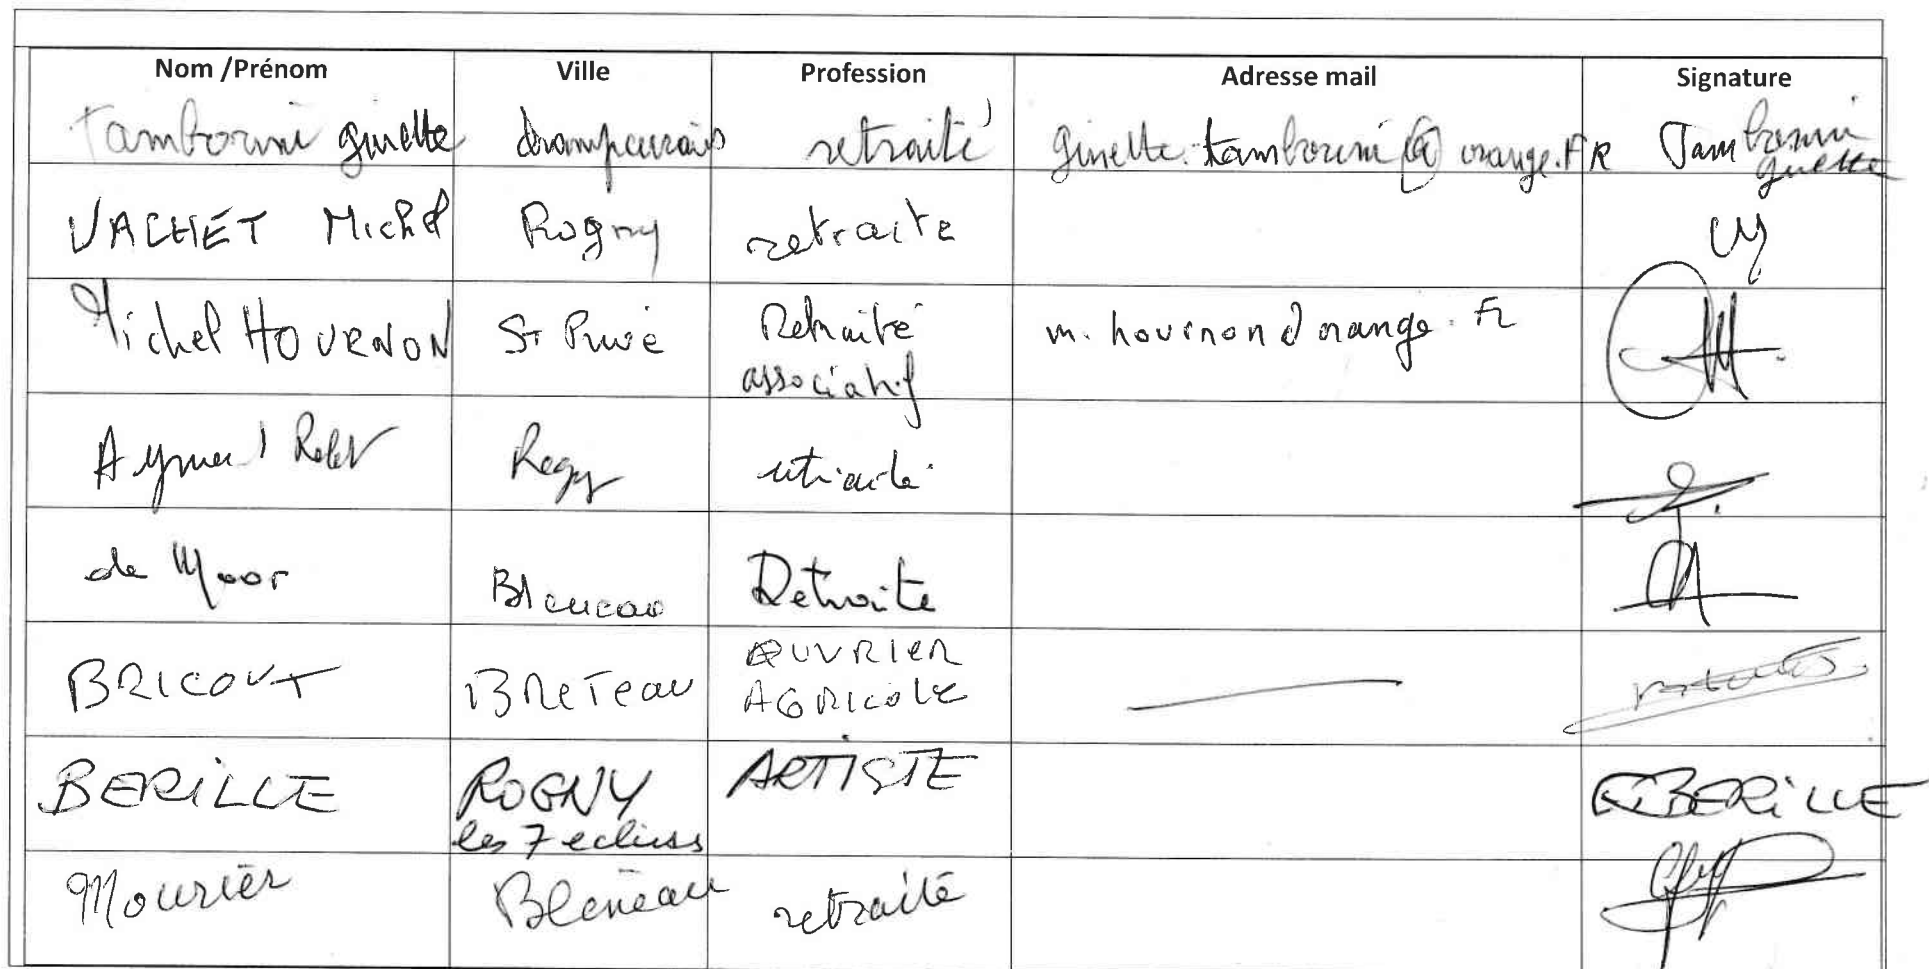 Nom /Prénom Ville Profession Adresse mail Signature
Tamborini ginette retraité ginette.tamborini@orange.FR Tamborini
ginette
VACHET Michel Rogny retraite
Michel HOURNON St Privé Retraité m.hournon@orange.Fr
associatif
Rogny retraité
de Moor Bleneau Retraite
BRICOUT BReTeau OUVRIER
AGRICOLE
BERiLLE ROGNY ARTISTE BERiLLE
les 7 ecluses
Mourier Bléneau retraité